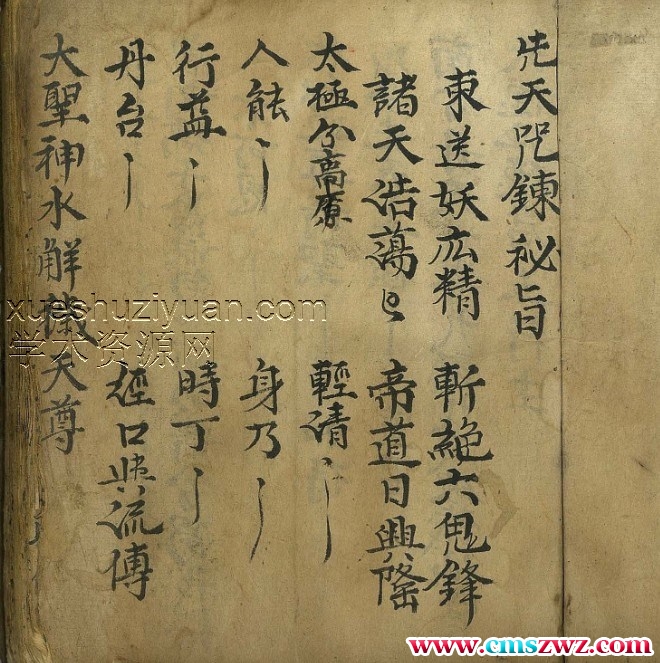 先天咒鍊秘旨
東送妖広精 斬絶六鬼鋒
諸天浩蕩〻 帝道日興隆
太極分高厚 輕清丶丨
人能丶丨 身乃丶丨
行益丶丨 時丁丶丨
丹台丶丨 經口與流傳
大聖神水解穢天尊
xueshuziyuan.com
学术资源网
www.cmszwz.com